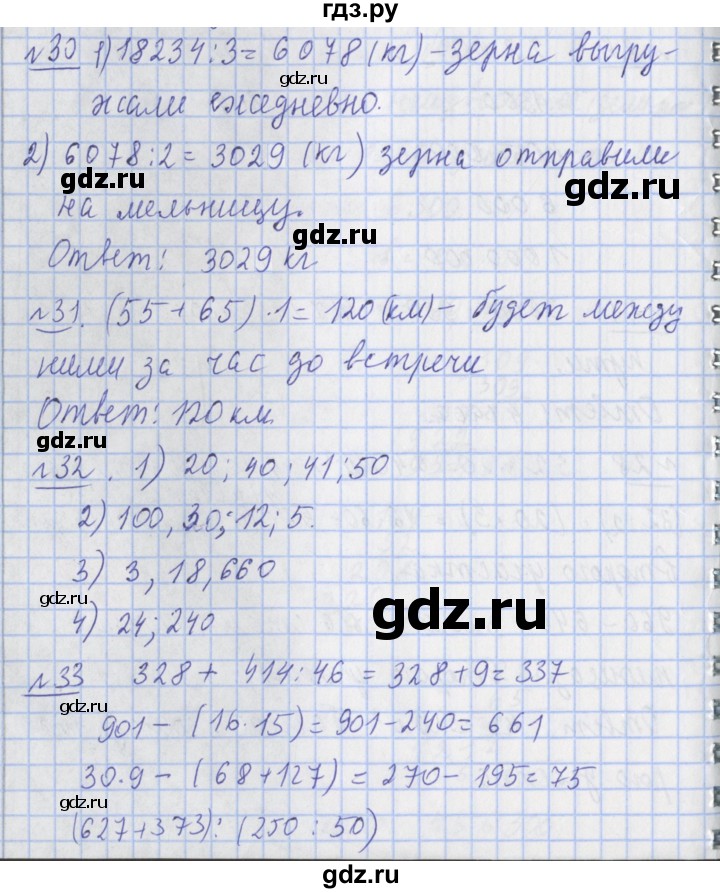 гдз.ру
№30 1) 18234:3=6078(кг)-зерна выгру-
жали ежедневно.
2) 6078:2=3029 (кг) зерна отправили
gdz.ru gdz.ru
на мельницу.
gdz.ru
Ответ: 3029 кг
№31. (55+65)·1=120(км)- будет между
gdz.ru
ними за час до встречи
gdz.ru
Ответ: 120 км
gdz.ru
№32. 1) 20; 40; 41; 50
2) 100, 30; 12; 5.
gdz.ru
3) 3, 18, 660
gdz.ru gdz.ru
4) 24; 240
№33 328+ 414:46=328+9=337
gdz.ru
901-(16·15)=901-240=661
gdz.ru
30·9-(68+127)=270-195=75
gdz.ru
(627+373):(250:50)
gdz.ru gdz.ru